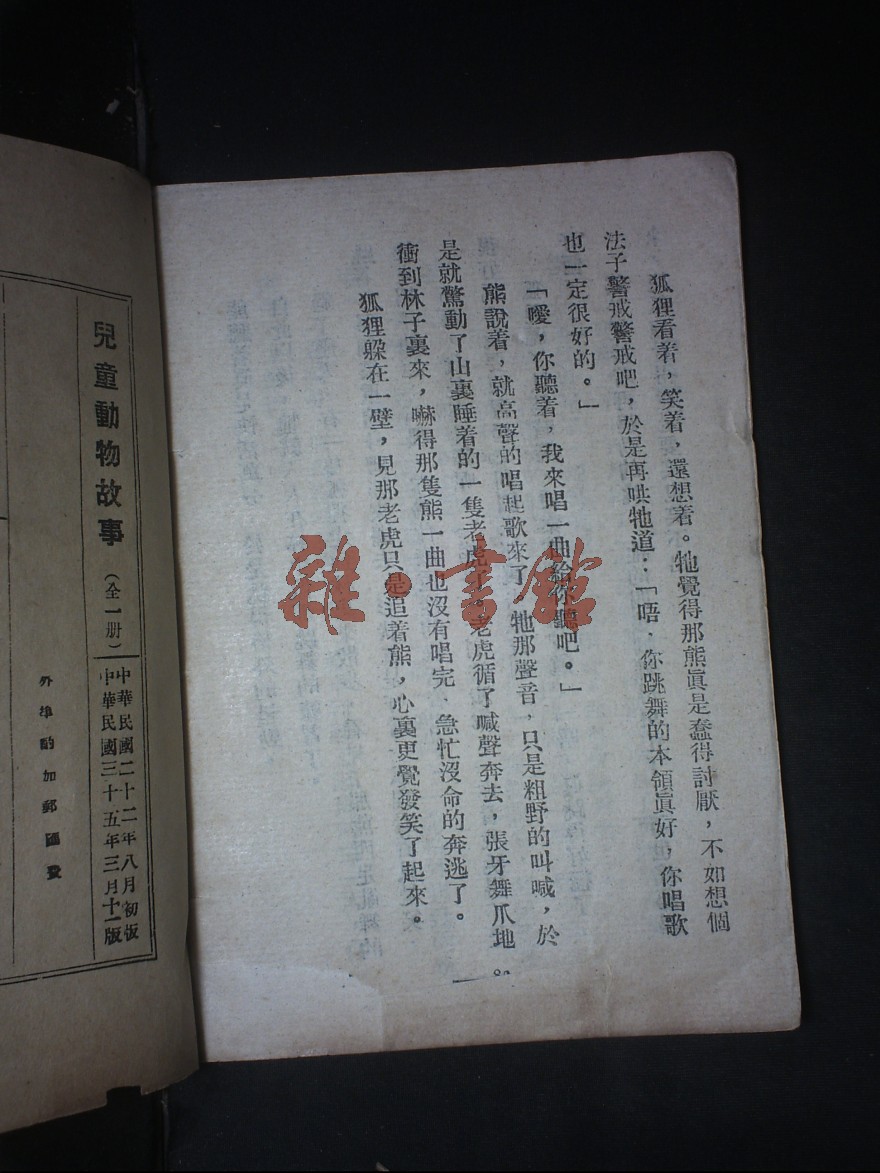 狐狸看着，笑着，還想着。牠覺得那熊眞是蠢得討厭，不如想個
法子警戒警戒吧，於是再哄牠道：「唔，你跳舞的本領眞好，你唱歌
也一定很好的。」
「噯，你聽着，我來唱一曲給你聽吧。」
熊說着，就高聲的唱起歌來了，牠那聲音，只是粗野的叫喊，於
是就驚動了山裏睡着的一隻老虎了。老虎循了喊聲奔去，張牙舞爪地
衝到林子裏來，嚇得那隻熊一曲也沒有唱完、急忙沒命的奔逃了。
狐狸躱在一壁，見那老虎只是追着熊，心裏更覺發笑了起來。
雜·書館
兒童動物故事（全一册）
中華民國二十二年八月初版
中華民國三十五年三月十一版
外埠酌加郵匯費